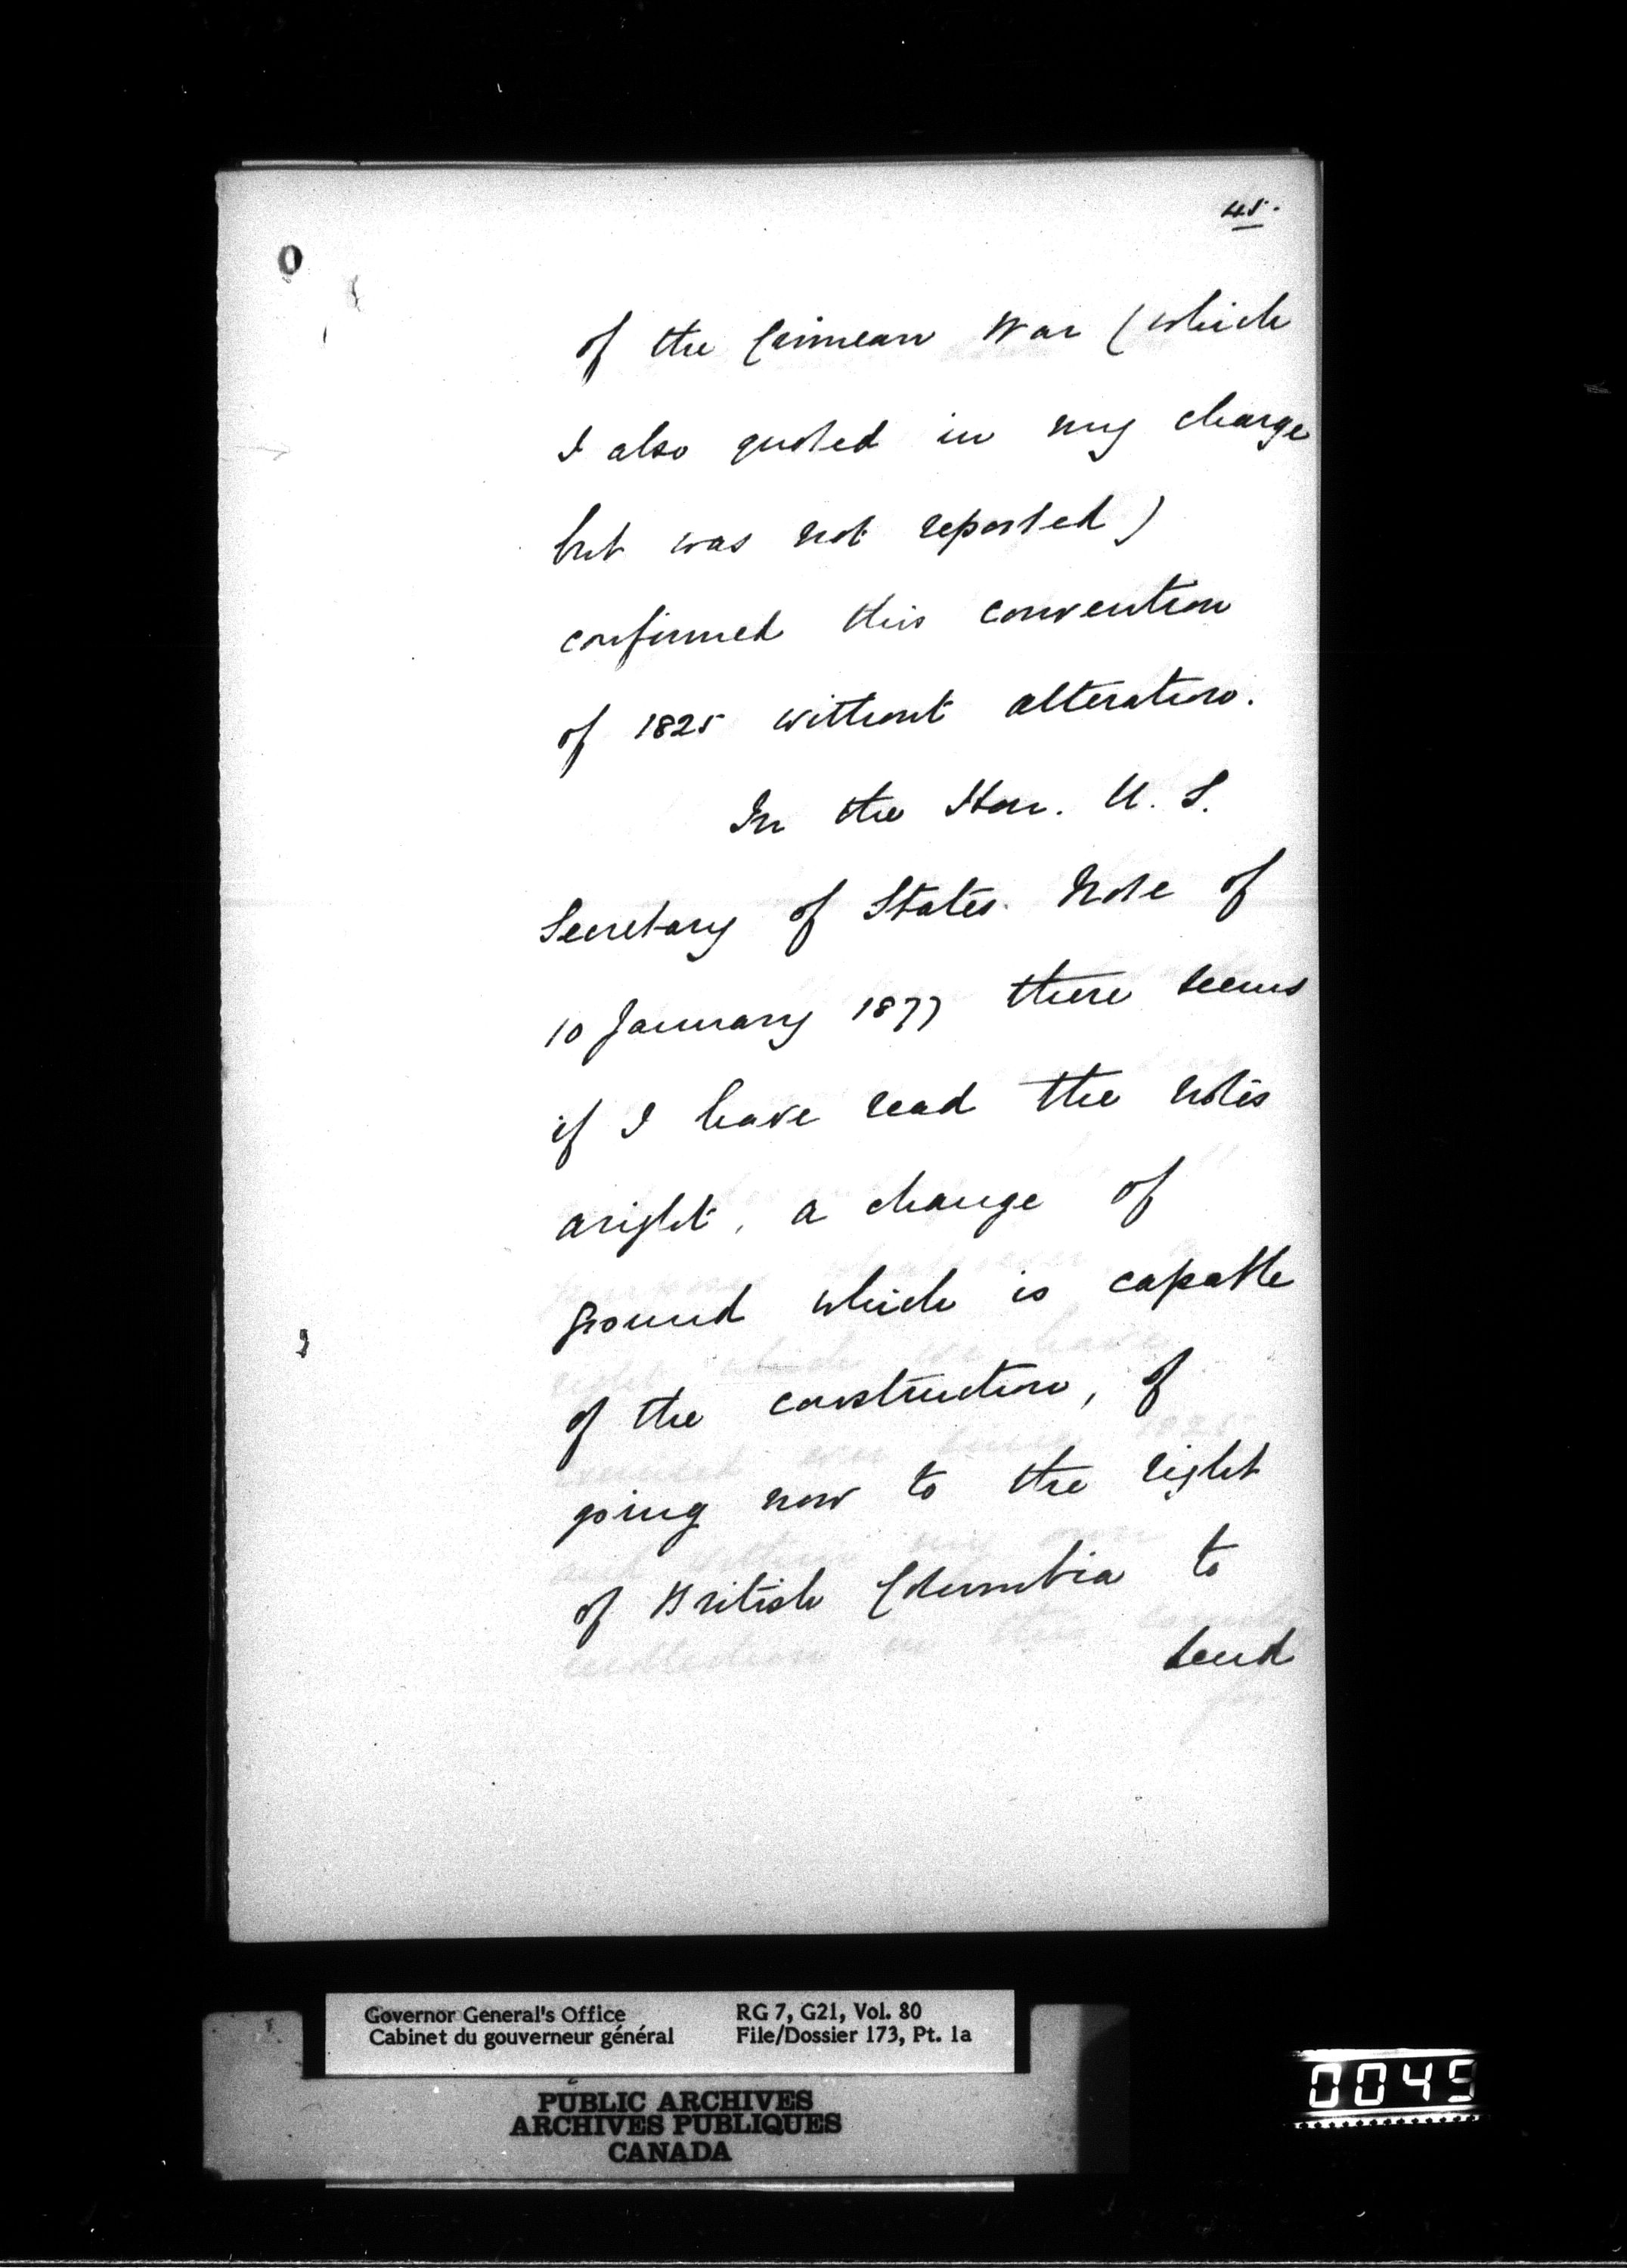 45.
of the Crimean War (which
I also quoted in my charge
but was not reported)
confirmed this convention
of 1825 without alteration.
In the Hon. U. S.
Secretary of States. Note of
10 January 1877 there seems
if I have read the notes
aright, a change of
ground which is capable
of the construction, of
going now to the right
of British Columbia to
send
Governor General's Office
Cabinet du gouverneur général
RG 7, G21, Vol. 80
File/Dossier 173, Pt. 1a
PUBLIC ARCHIVES
ARCHIVES PUBLIQUES
CANADA
0045